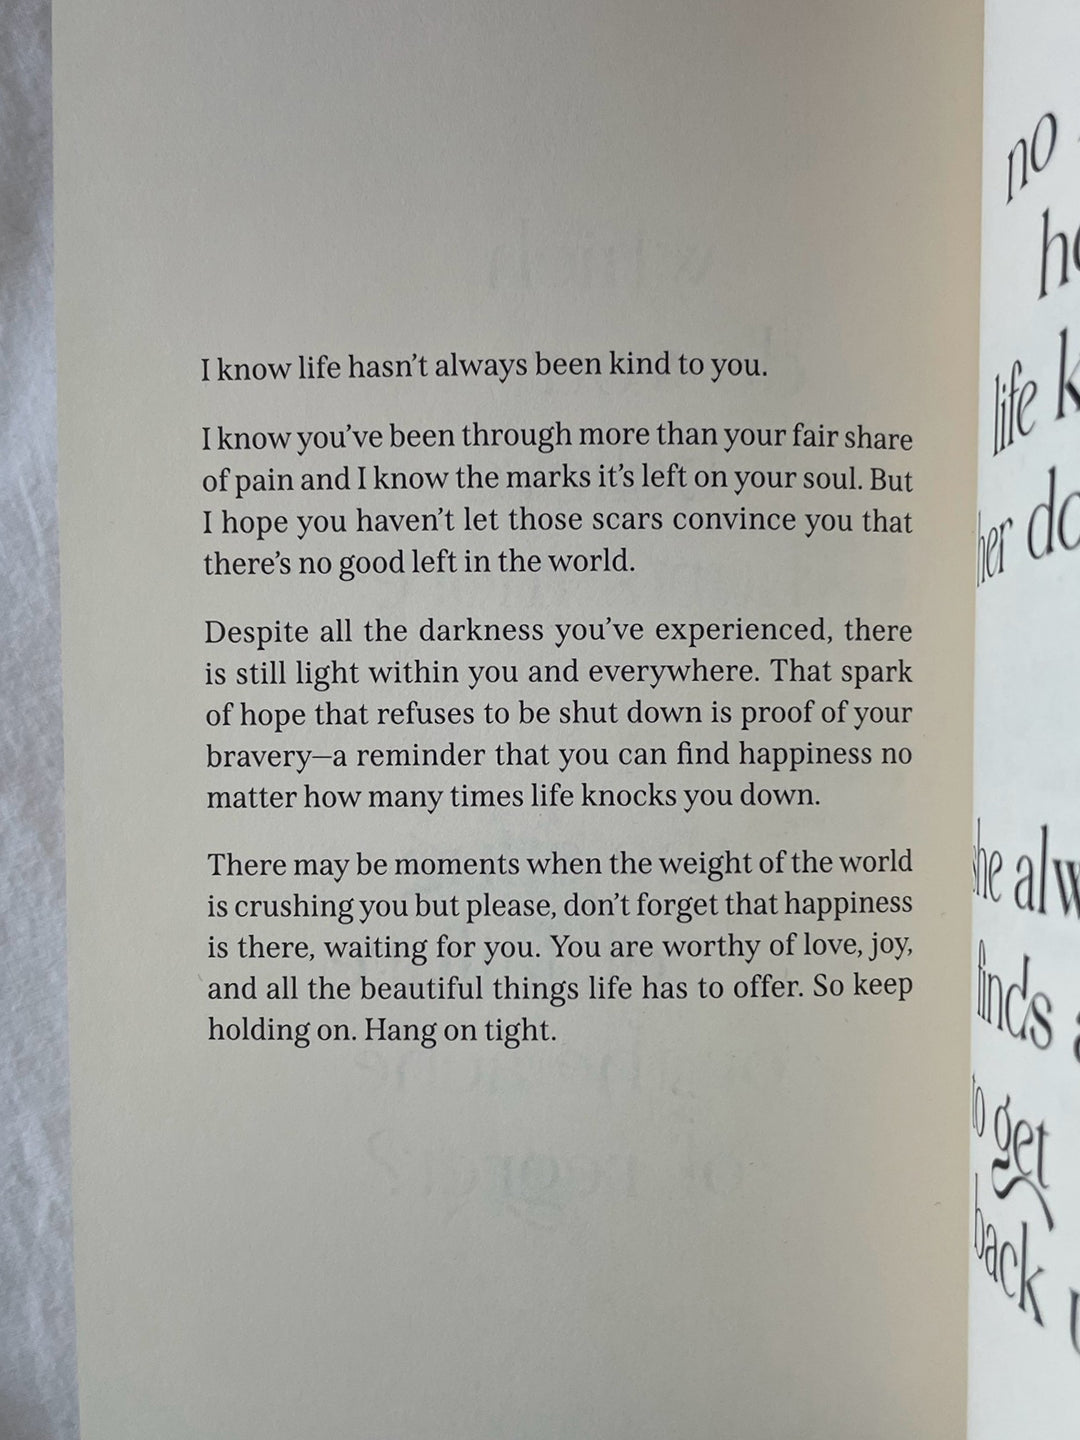 I know life hasn't always been kind to you.
I know you've been through more than your fair share
of pain and I know the marks it's left on your soul. But
I hope you haven't let those scars convince you that
there's no good left in the world.
Despite all the darkness you've experienced, there
is still light within you and everywhere. That spark
of hope that refuses to be shut down is proof of your
bravery—a reminder that you can find happiness no
matter how many times life knocks you down.
There may be moments when the weight of the world
is crushing you but please, don't forget that happiness
is there, waiting for you. You are worthy of love, joy,
and all the beautiful things life has to offer. So keep
holding on. Hang on tight.
no
life
finds
get
back